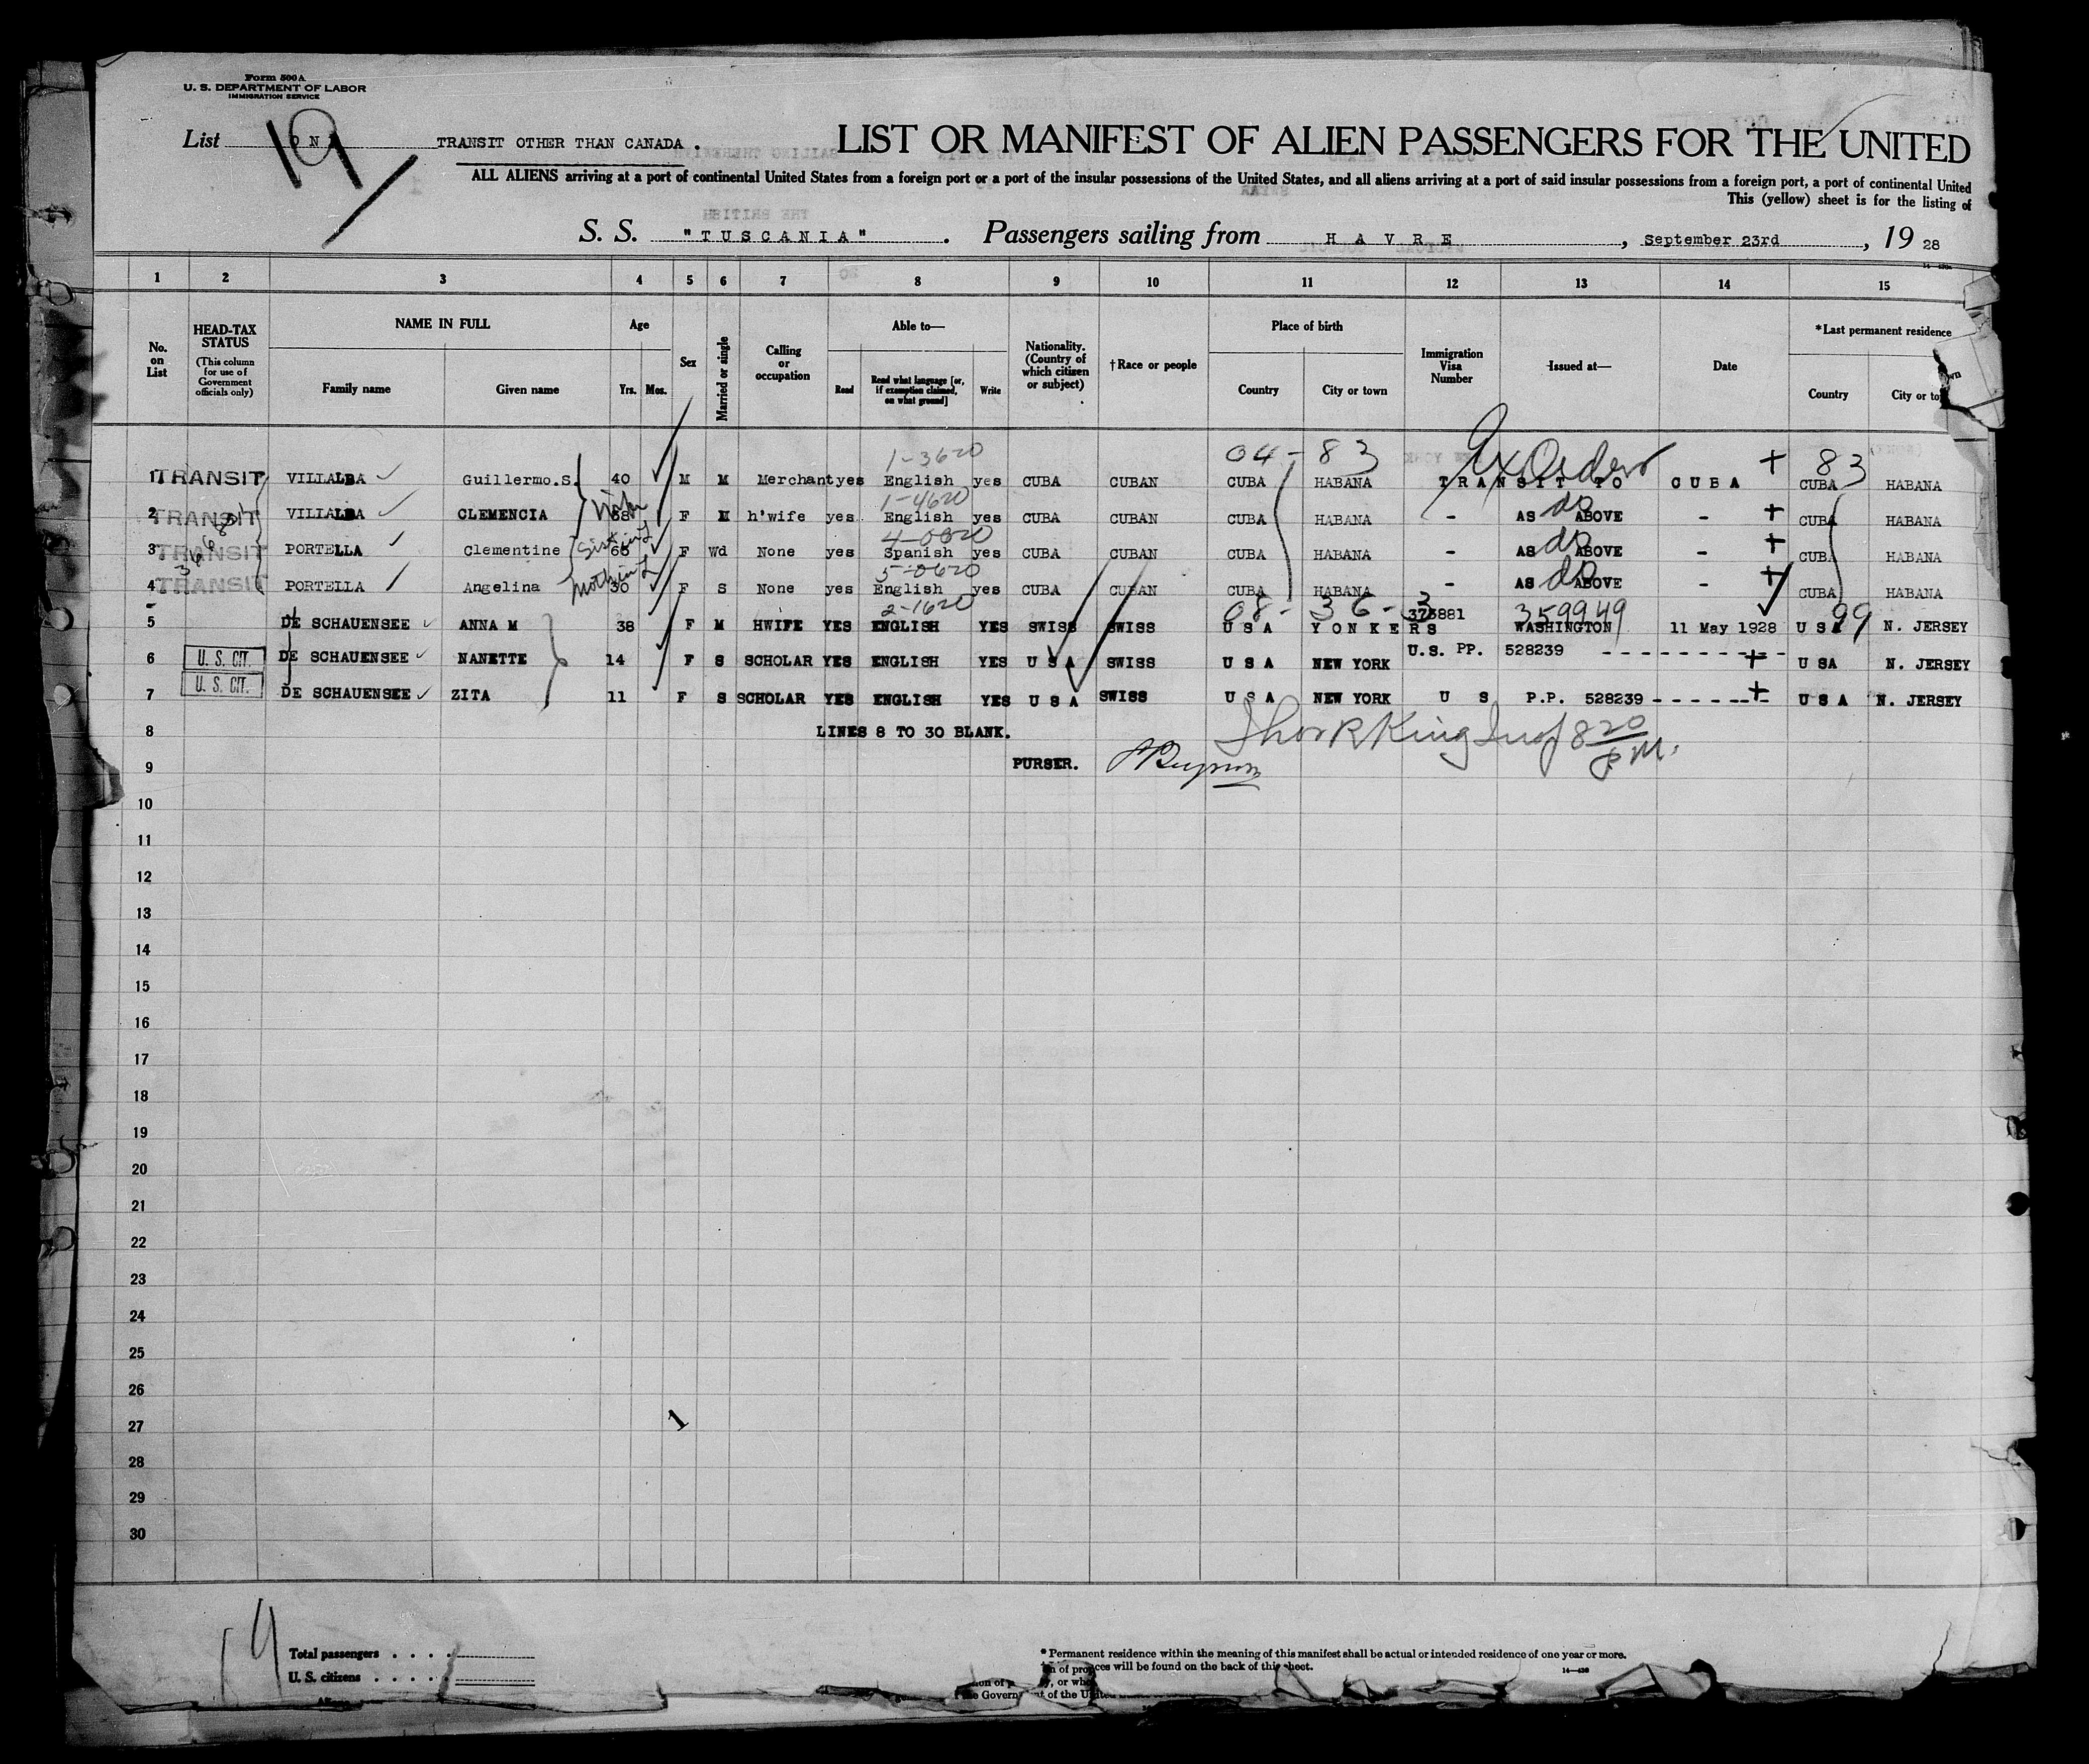 Form 500A
U. S. DEPARTMENT OF LABOR
IMMIGRATION SERVICE
List 19 TRANSIT OTHER THAN CANADA. LIST OR MANIFEST OF ALIEN PASSENGERS FOR THE UNITED
ALL ALIENS arriving at a port of continental United States from a foreign port or a port of the insular possessions of the United States, and all aliens arriving at a port of said insular possessions from a foreign port, a port of continental United
This (yellow) sheet is for the listing of
S. S. "TUSCANIA". Passengers sailing from HAVRE, September 23rd, 19 28
1 2 3 4 5 6 7 8 9 10 11 12 13 14 15
No. on List
HEAD-TAX STATUS (This column for use of Government officials only)
NAME IN FULL
Family name Given name
Age
Yrs. Mos.
Sex
Married or single
Calling or occupation
Able to—
Read Read what language [or, if exemption claimed, on what ground] Write
Nationality. (Country of which citizen or subject)
†Race or people
Place of birth
Country City or town
Immigration Visa Number
Issued at—
Date
*Last permanent residence
Country City or to wn
1-3620 04-83 Ex Order + 83
1 TRANSIT VILLALBA Guillermo.S. 40 M M Merchant yes English yes CUBA CUBAN CUBA HABANA TRANSIT TO CUBA CUBA HABANA
1-4620 do +
2 TRANSIT VILLALBA CLEMENCIA F M h'wife yes English yes CUBA CUBAN CUBA HABANA - AS ABOVE - CUBA HABANA
do +
3 TRANSIT PORTELLA Clementine F Wd None yes Spanish yes CUBA CUBAN CUBA HABANA - AS ABOVE - CUBA HABANA
5-0620 do +
4 TRANSIT PORTELLA Angelina 30 F S None yes English yes CUBA CUBAN CUBA HABANA - AS ABOVE - CUBA HABANA
2-1620 08-36-3 359949 99
5 DE SCHAUENSEE ANNA M 38 F M HWIFE YES ENGLISH YES SWISS SWISS USA YONKERS WASHINGTON 11 May 1928 USA N. JERSEY
6 U. S. CIT. DE SCHAUENSEE NANETTE 14 F S SCHOLAR YES ENGLISH YES USA SWISS USA NEW YORK U.S. PP. 528239 - - - - - - - - - - + USA N. JERSEY
7 U. S. CIT. DE SCHAUENSEE ZITA 11 F S SCHOLAR YES ENGLISH YES USA SWISS USA NEW YORK U S P.P. 528239 - - - - - - + USA N. JERSEY
8 LINES 8 TO 30 BLANK.
9 PURSER.
10
11
12
13
14
15
16
17
18
19
20
21
22
23
24
25
26
27
28
29
30
1
19
Total passengers . . . .
U. S. citizens . . . . .
* Permanent residence within the meaning of this manifest shall be actual or intended residence of one year or more.
ces will be found on the back of this sheet.
14—430